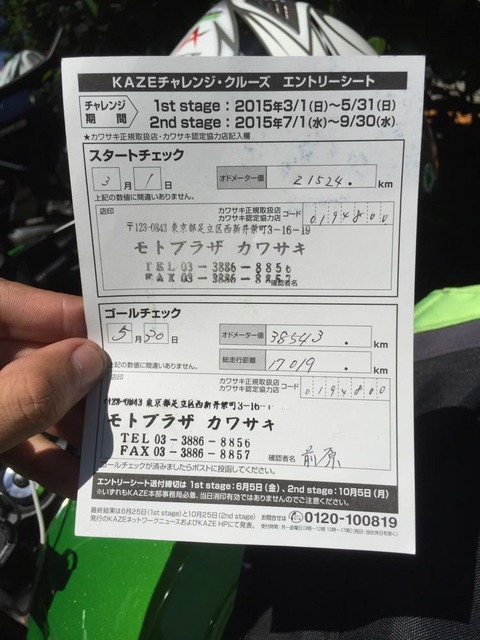 KAZEチャレンジ・クルーズ エントリーシート
チャレンジ期間
1st stage：2015年3/1(日)～5/31(日)
2nd stage：2015年7/1(水)～9/30(水)
★カワサキ正規取扱店・カワサキ認定協力店記入欄
スタートチェック
3月1日
オドメーター値 21524. km
上記の数値に間違いありません。
店印
カワサキ正規取扱店 カワサキ認定協力店 コード 0194800
〒123-0843 東京都足立区西新井栄町3-16-19
モトプラザ カワサキ
TEL 03-3886-8856
FAX 03-3886-8857
確認者名
ゴールチェック
5月30日
オドメーター値 38543. km
総走行距離 17019. km
上記の数値に間違いありません。
店印
カワサキ正規取扱店 カワサキ認定協力店 コード 0194800
123-0843 東京都足立区西新井栄町3-16-1
モトプラザ カワサキ
TEL 03-3886-8856
FAX 03-3886-8857
確認者名 前原
ゴールチェックが済みましたらポストに投函してください。
エントリーシート送付締切は 1st stage：6月5日(金)、2nd stage：10月5日(月)
※いずれもKAZE本部事務局必着、当日消印有効ではありませんのでご注意ください。
最終結果は6月25日(1st stage)と10月25日(2nd stage)
発行のKAZEネットワークニュースおよびKAZE HPにて発表。
お問合せは 0120-100819